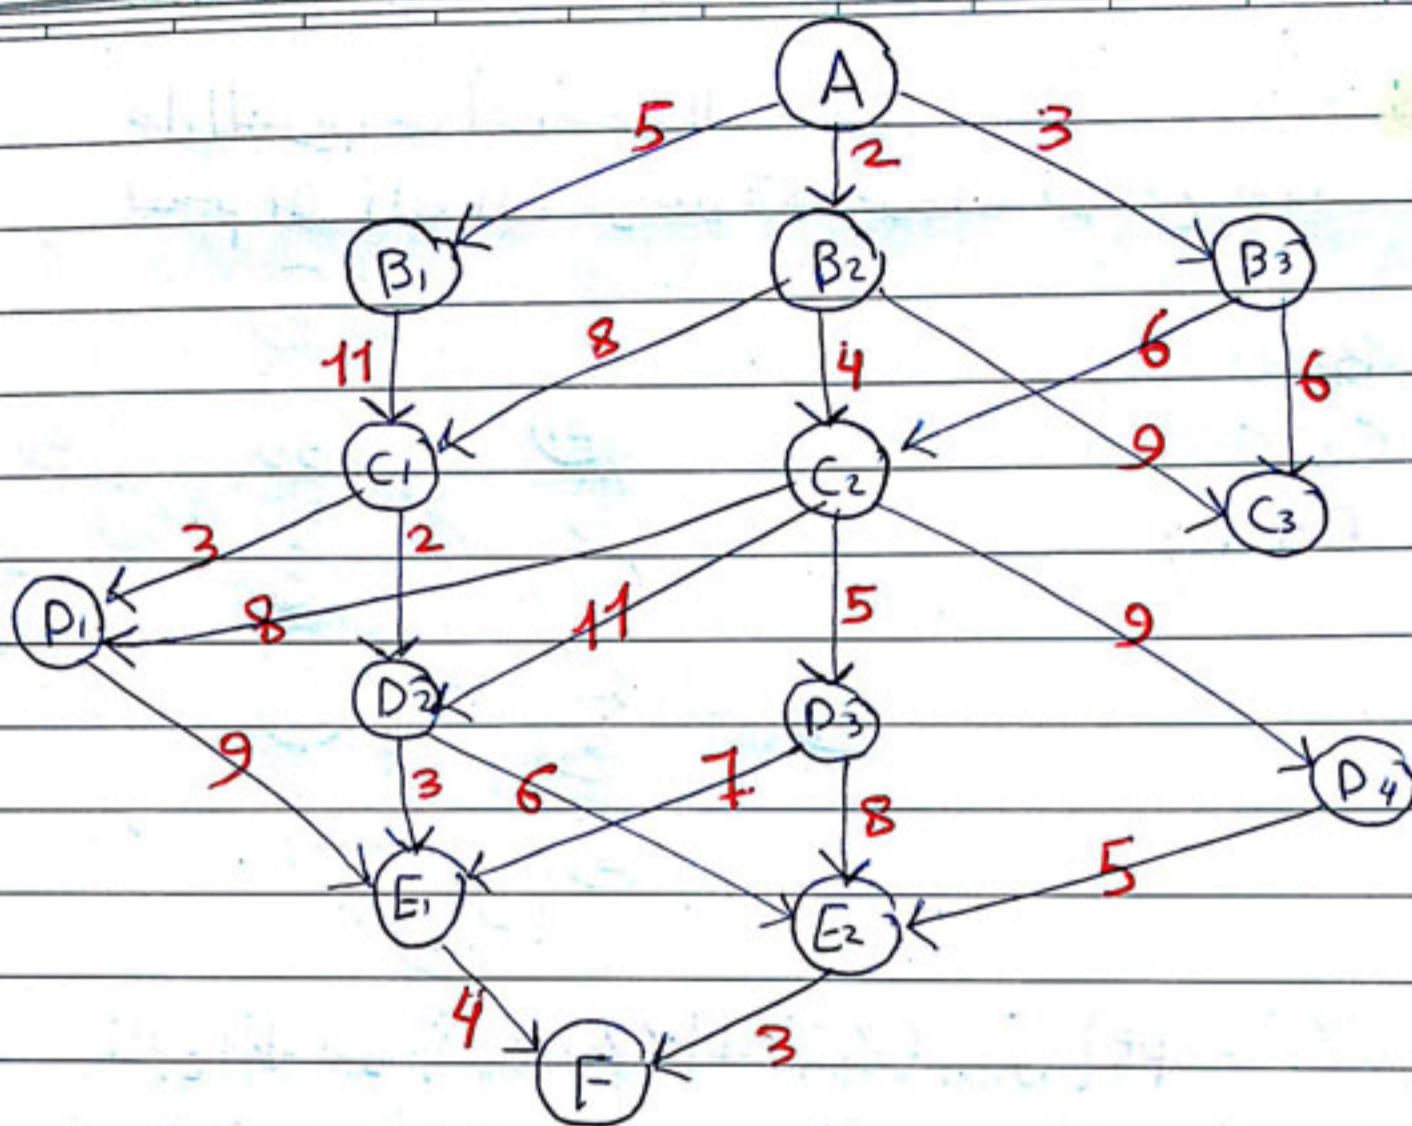 A
5 2 3
B1 B2 B3
11 8 4 6 6
9
C1 C2 C3
3 2
8 11 5 9
D1 D2 D3 D4
9 3 6 7 8 5
E1 E2
4 3
F